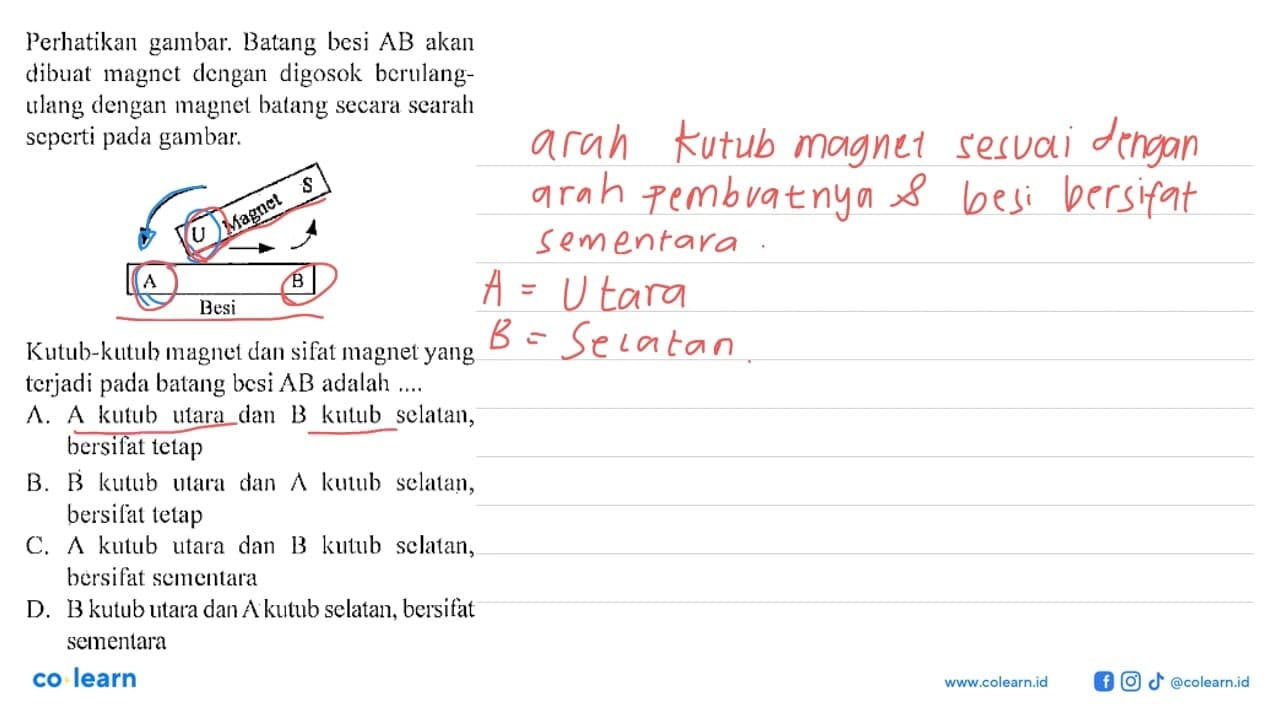 Perhatikan gambar. Batang besi AB akan
dibuat magnet dengan digosok berulang-
ulang dengan magnet batang secara searah
seperti pada gambar.
U Magnet S
A B
Besi
Kutub-kutub magnet dan sifat magnet yang
terjadi pada batang besi AB adalah ....
A. A kutub utara dan B kutub selatan,
bersifat tetap
B. B kutub utara dan A kutub selatan,
bersifat tetap
C. A kutub utara dan B kutub selatan,
bersifat sementara
D. B kutub utara dan A kutub selatan, bersifat
sementara
arah kutub magnet sesuai dengan
arah pembuatnya & besi bersifat
sementara.
A = Utara
B = Selatan.
co learn
www.colearn.id
@colearn.id